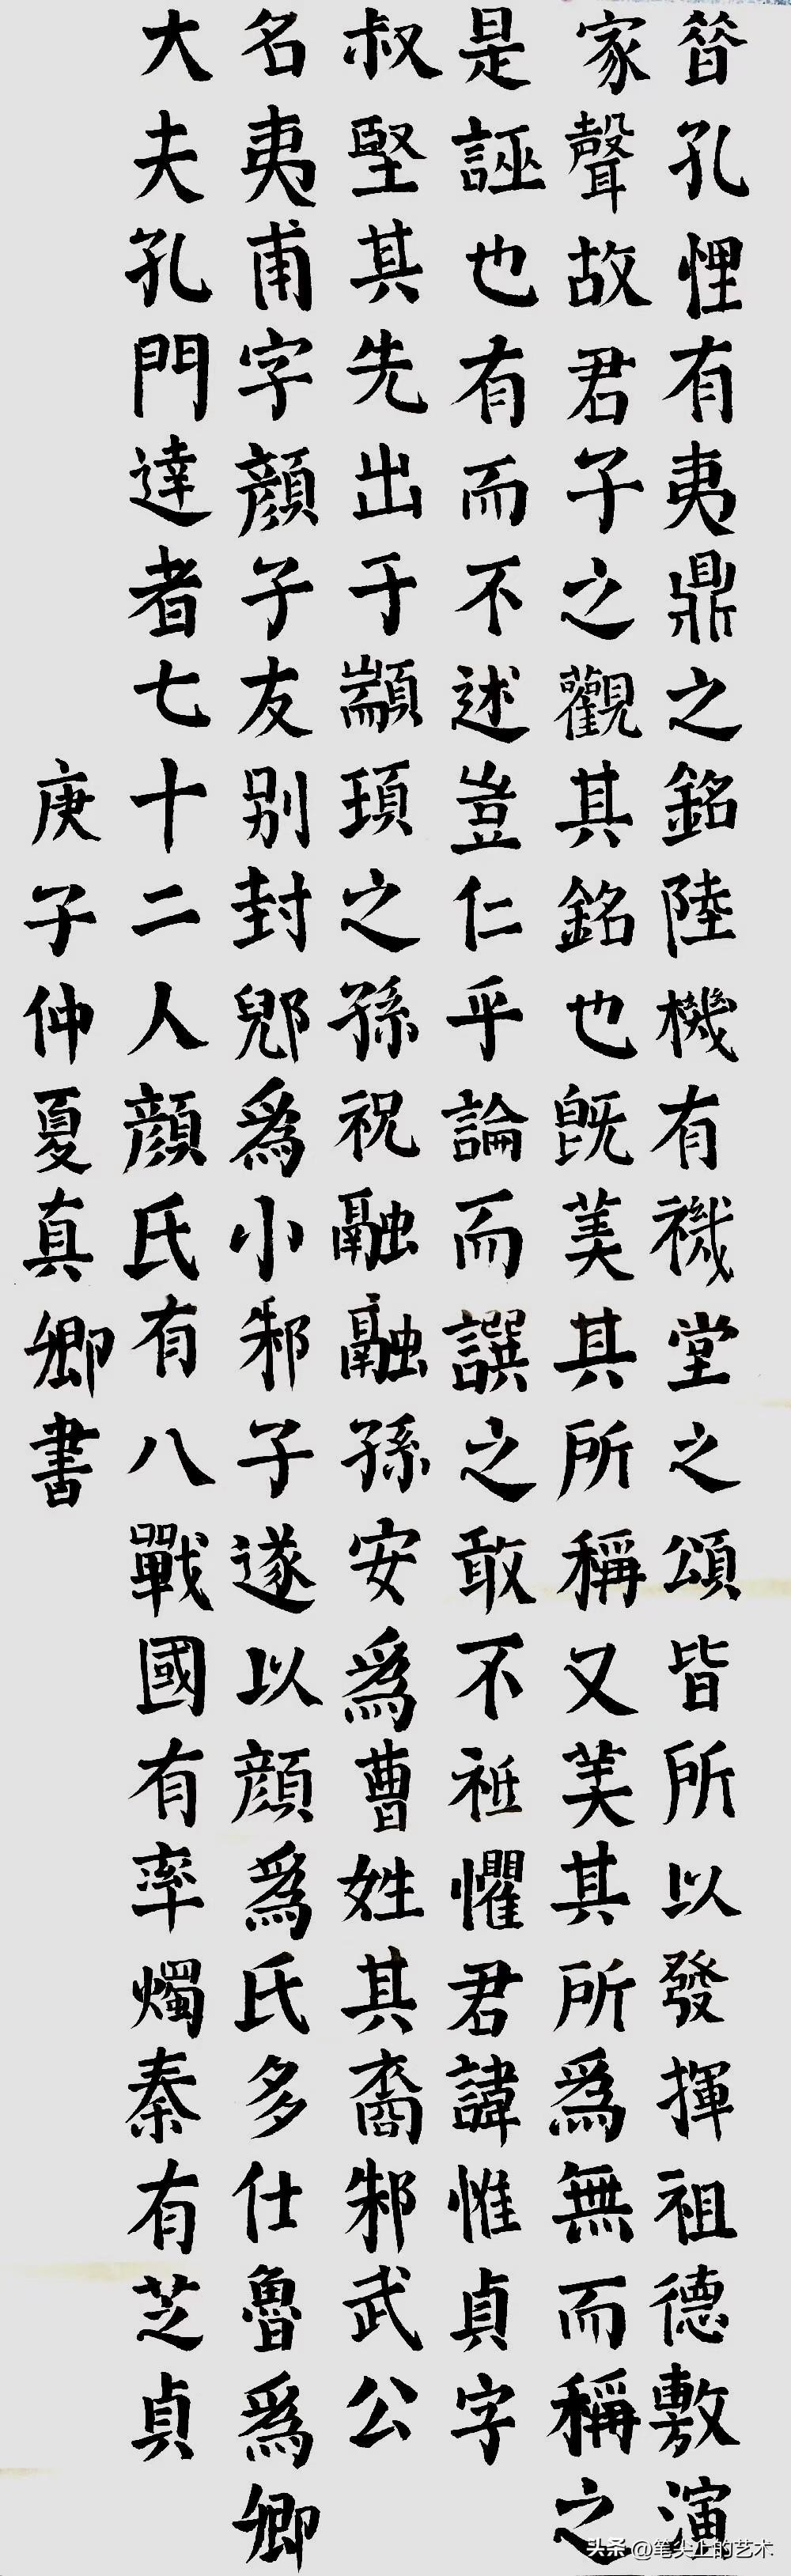 昝孔悝有夷鼎之銘陸機有禨堂之頌皆所以發揮祖德敷演
家聲故君子之觀其銘也旣美其所稱又美其所爲無而稱之
是誣也有而不述豈仁乎論而譔之敢不祗懼君諱惟貞字
叔堅其先出于顓頊之孫祝融融孫安爲曹姓其裔邾武公
名夷甫字顏子友别封郳爲小邾子遂以顏爲氏多仕魯爲卿
大夫孔門達者七十二人顏氏有八戰國有率燭秦有芝貞
庚子仲夏真卿書
头条 @笔尖上的艺术